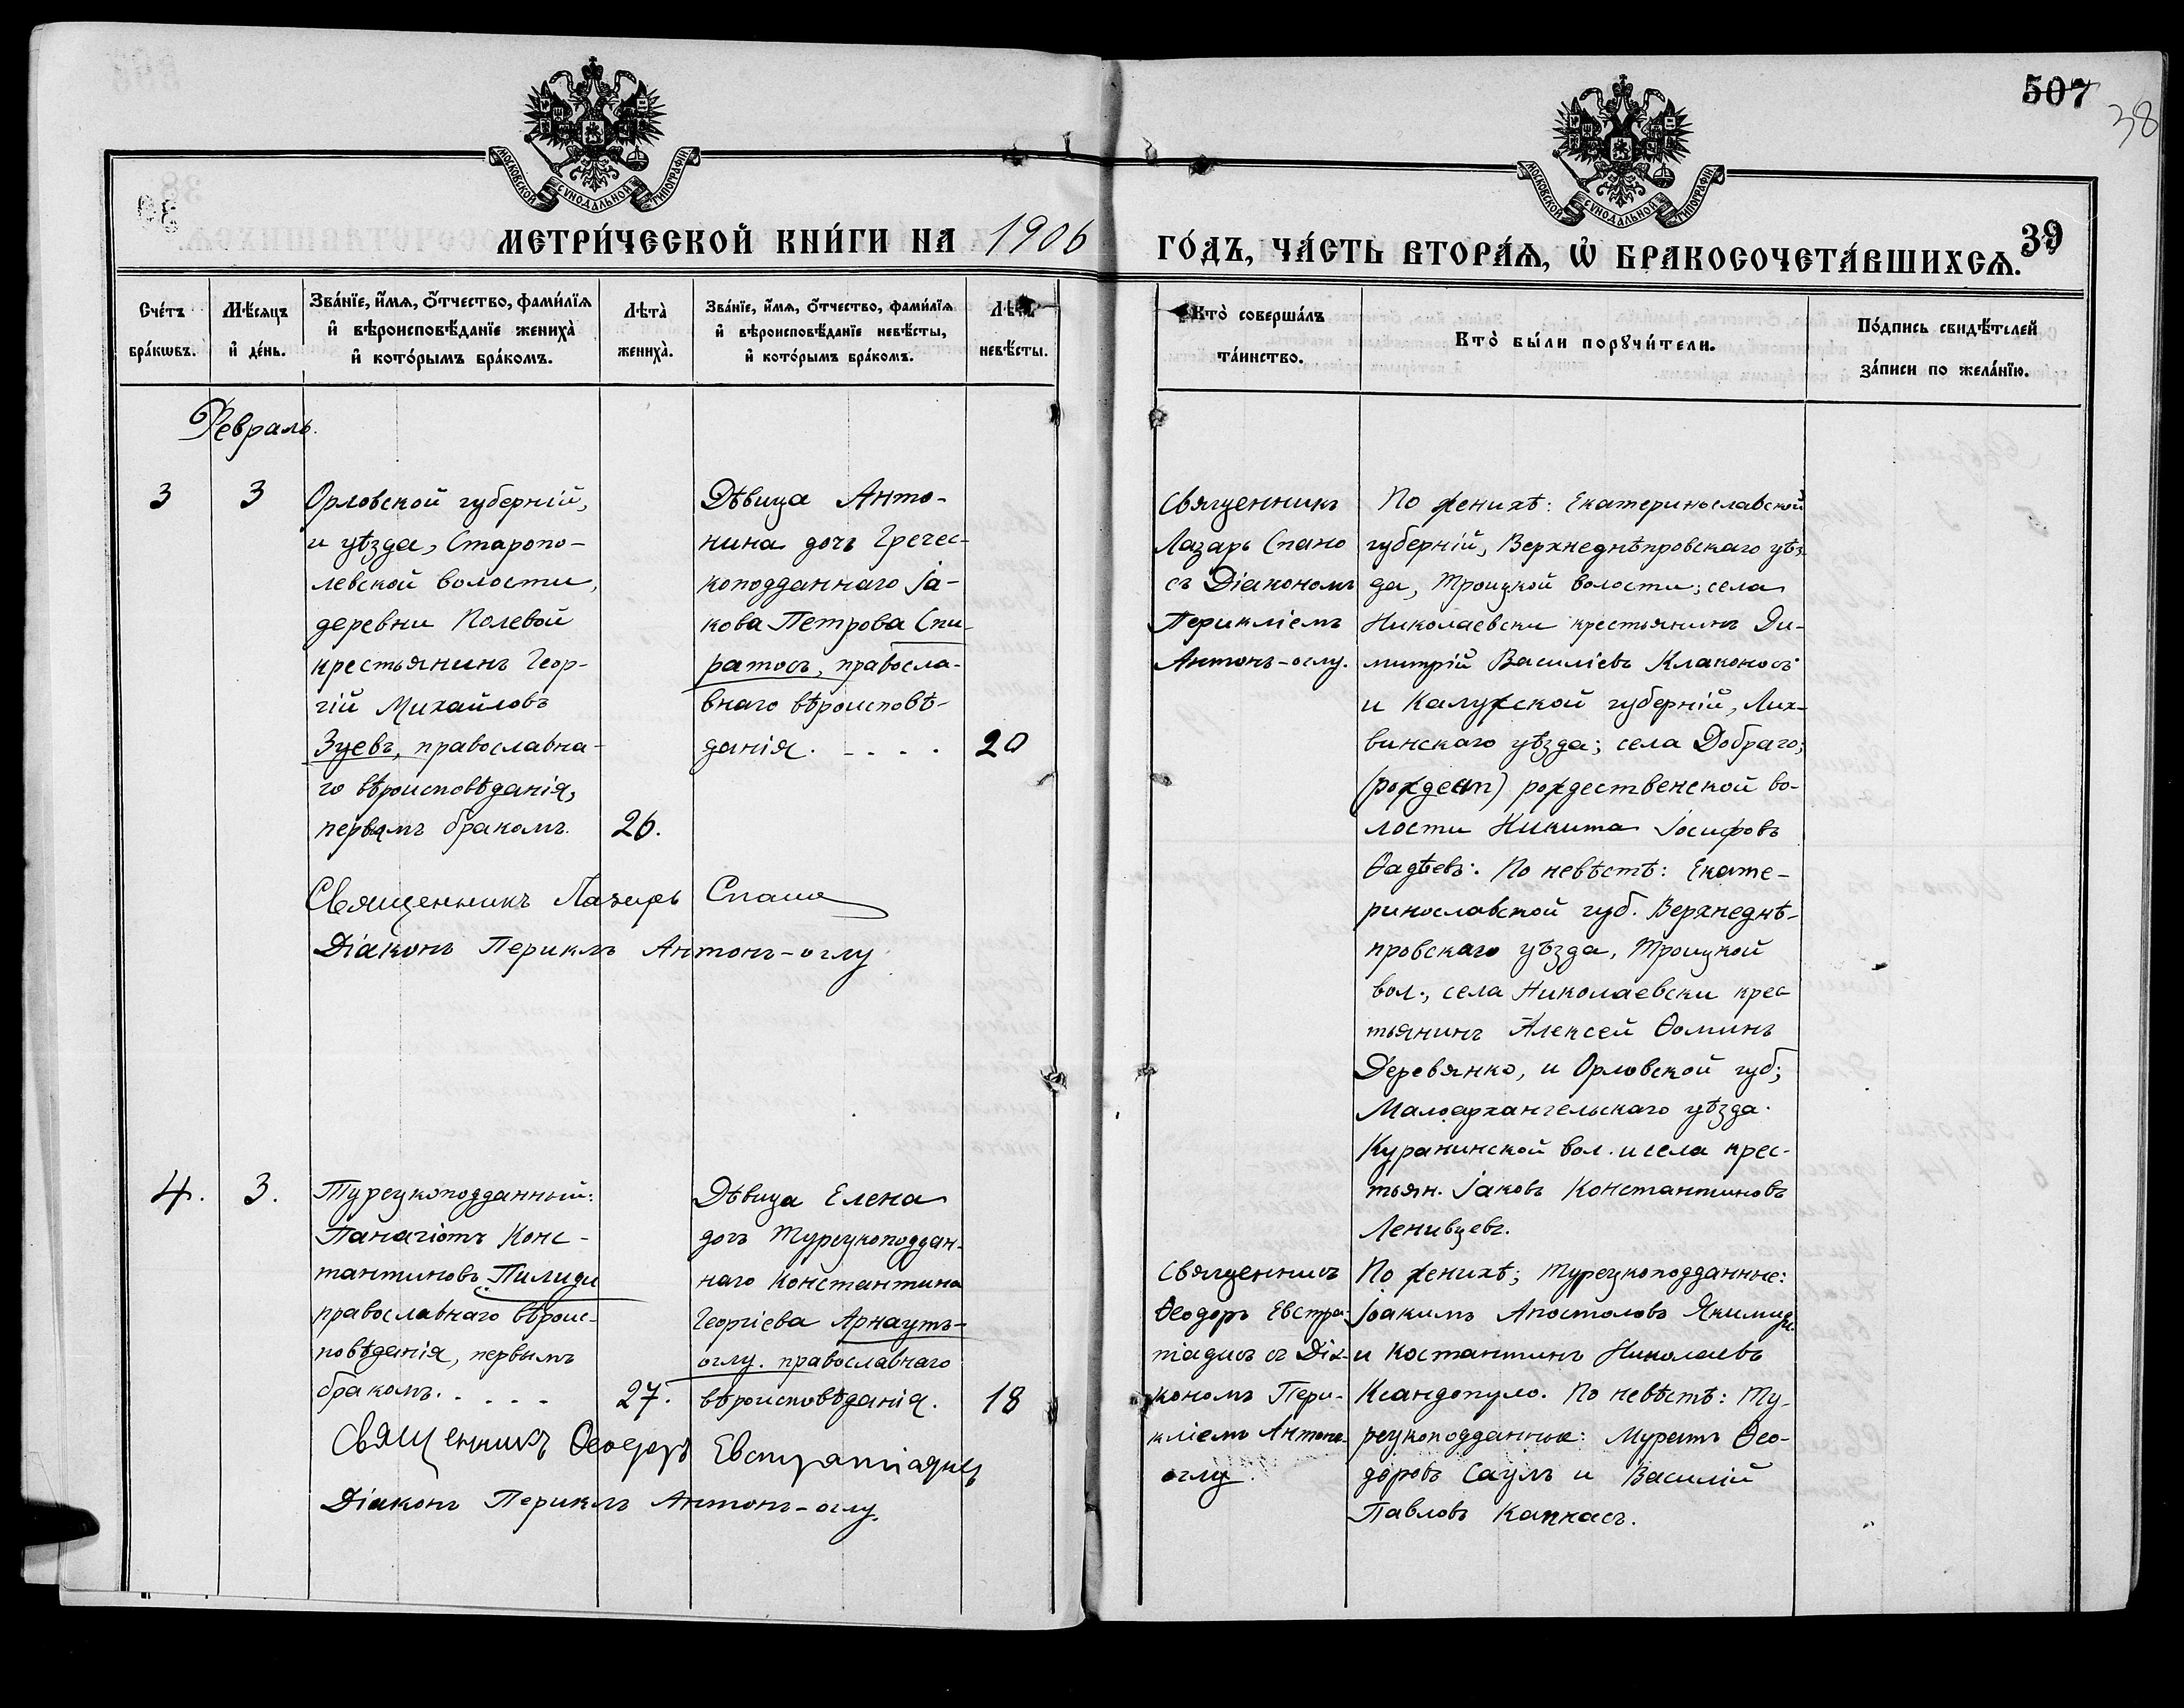 507
38
МОСКОВСКОЙ СѴНОДАЛЬНОЙ ТИПОГРАФІИ
МОСКОВСКОЙ СѴНОДАЛЬНОЙ ТИПОГРАФІИ
МЕТРИ́ЧЕСКОЙ КНИ́ГИ НА 1906
ГО́ДЪ, ЧА́СТЬ ВТОРА́Ѧ, Ѡ҆ БРАКОСОЧЕТА́ВШИХСѦ.
39
Сче́тъ
бра́кѡвъ.
Мѣ́сяцъ
и҆ де́нь.
Зва́нїе, и҆́мѧ, ѻ҆́тчество, фами́лїѧ
и҆ вѣроисповѣ́данїе жениха̀
и҆ кото́рымъ бра́комъ.
Лѣта̀
жениха̀.
Зва́нїе, и҆́мѧ, ѻ҆́тчество, фами́лїѧ
и҆ вѣроисповѣ́данїе невѣ́сты,
и҆ кото́рымъ бра́комъ.
Лѣта̀
невѣ́сты.
Кто̀ соверша́лъ
та́инство.
Кто̀ бы́ли порꙋчи́тели.
По́дпись свидѣ́телей
за́писи по жела́нїю.
Февраль.
3
3
Орловской губерній,
и уѣзда, Старопо-
левской волости,
деревни Полевой
крестьянинъ Геор-
гій Михайловъ
Зуевъ, православна-
го вѣроисповѣданія,
первымъ бракомъ.
26.
Дѣвица Анто-
нина дочь Гречес-
коподданнаго Іа-
кова Петрова Спи-
ратосъ, правосла-
внаго вѣроисповѣ-
данія. - - - .
20
Священникъ Лазарь Спано
Діаконъ Периклъ Антонъ-оглу
Священникъ
Лазарь Спано
съ Діакономъ
Перикліемъ
Антонъ-оглу.
По женихѣ: Екатеринославской
губерній, Верхнеднѣпровскаго уѣз-
да, Троицкой волости; села
Николаевски крестьянинъ Ди-
митрій Василіевъ Клаконосъ
и Калужской губерній, Лих-
винскаго уѣзда; села Добраго;
(рождест) рождественской во-
лости Никита Іосифовъ
Ѳадѣевъ. По невѣстѣ: Екате-
ринославской губ. Верхнеднѣ-
провскаго уѣзда, Троицкой
вол., села Николаевски крес-
тьянинъ Алексей Ѳоминъ
Деревянко, и Орловской губ;
Малоархангельскаго уѣзда.
Куракинской вол. и села крес-
тьян. Іаковъ Константиновъ
Ленивцевъ.
4.
3.
Турецкоподданный:
Панагіотъ Конс-
тантиновъ Пилиди
православнаго вѣроис-
повѣданія, первымъ
бракомъ. . - - -
27.
Дѣвица Елена
дочь Турецкоподдан-
наго Константина
Георгіева Арнаутъ-
оглу. православнаго
вѣроисповѣданія.
18
Священникъ Ѳеодоръ Евстратіадисъ
Діаконъ Периклъ Антонъ-оглу.
Священникъ
Ѳеодоръ Евстра-
тіадисъ съ Діа-
кономъ Пери-
кліемъ Антонъ-
оглу.
По женихѣ; Турецкоподданные:
Іоакимъ Апостоловъ Якимиди
и Костантинъ Николаевъ
Ксандопуло. По невѣстѣ: Ту-
рецкоподданные: Муратъ Ѳео-
доровъ Саулъ и Василій
Павловъ Капкасъ.